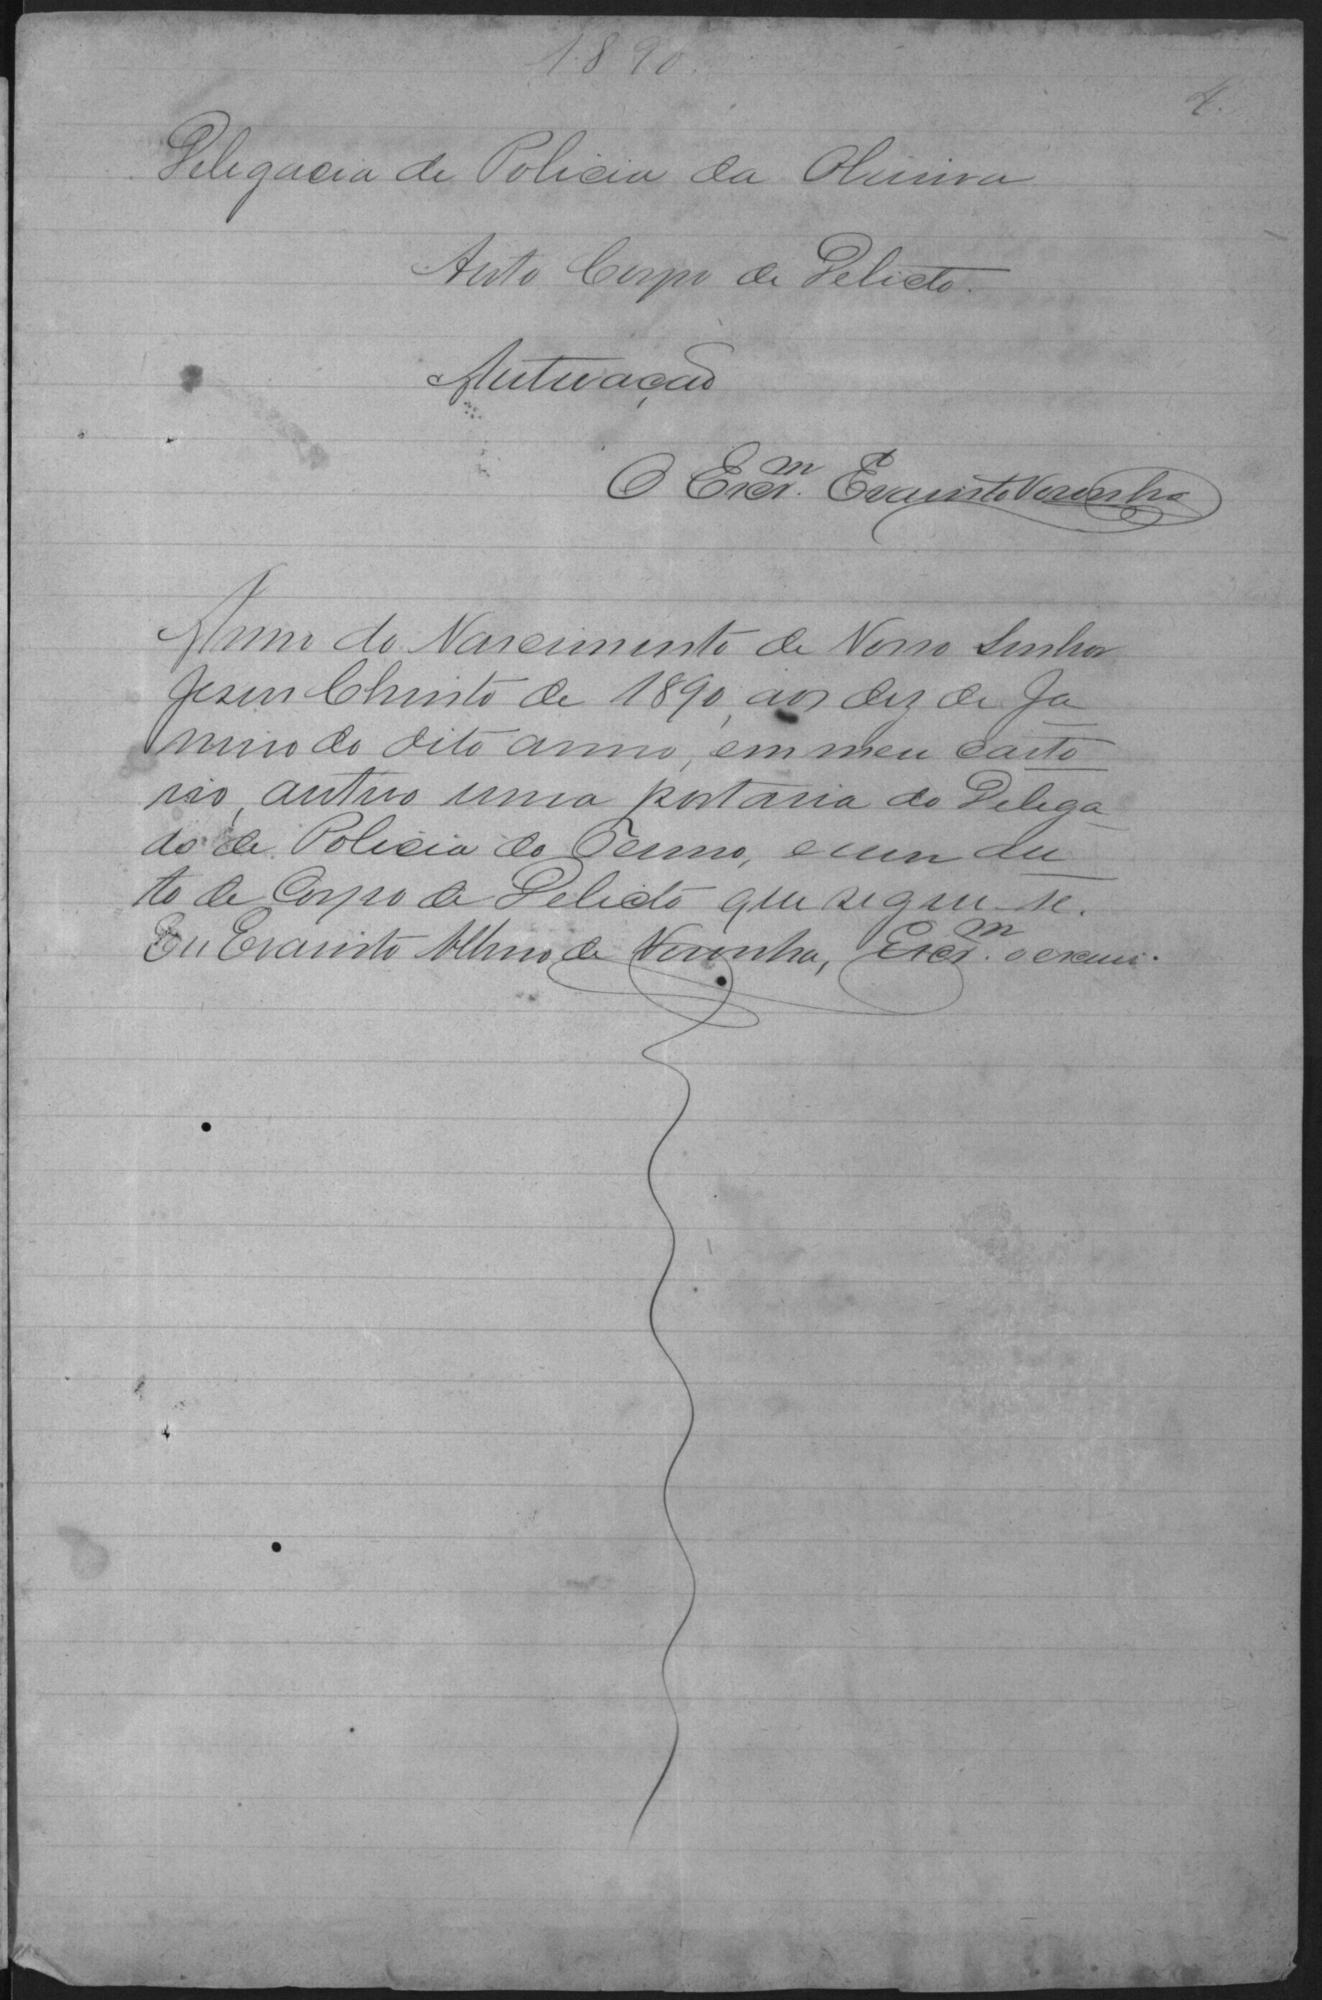 1890.
4.
Delegacia de Policia da Oliveira
Auto Corpo de Delicto.
Autuação
O Escr.m Evaristo Noronha
Anno do Nascimento de Nosso Senhor
Jesus Christo de 1890, aos dez de Ja
neiro do dito anno, em meu carto
rio, autuo uma portaria do Delega
do de Policia do Termo, e um au
to de Corpo de Delicto que segue-se.
Eu Evaristo de Noronha, Escr.m o escrevi.